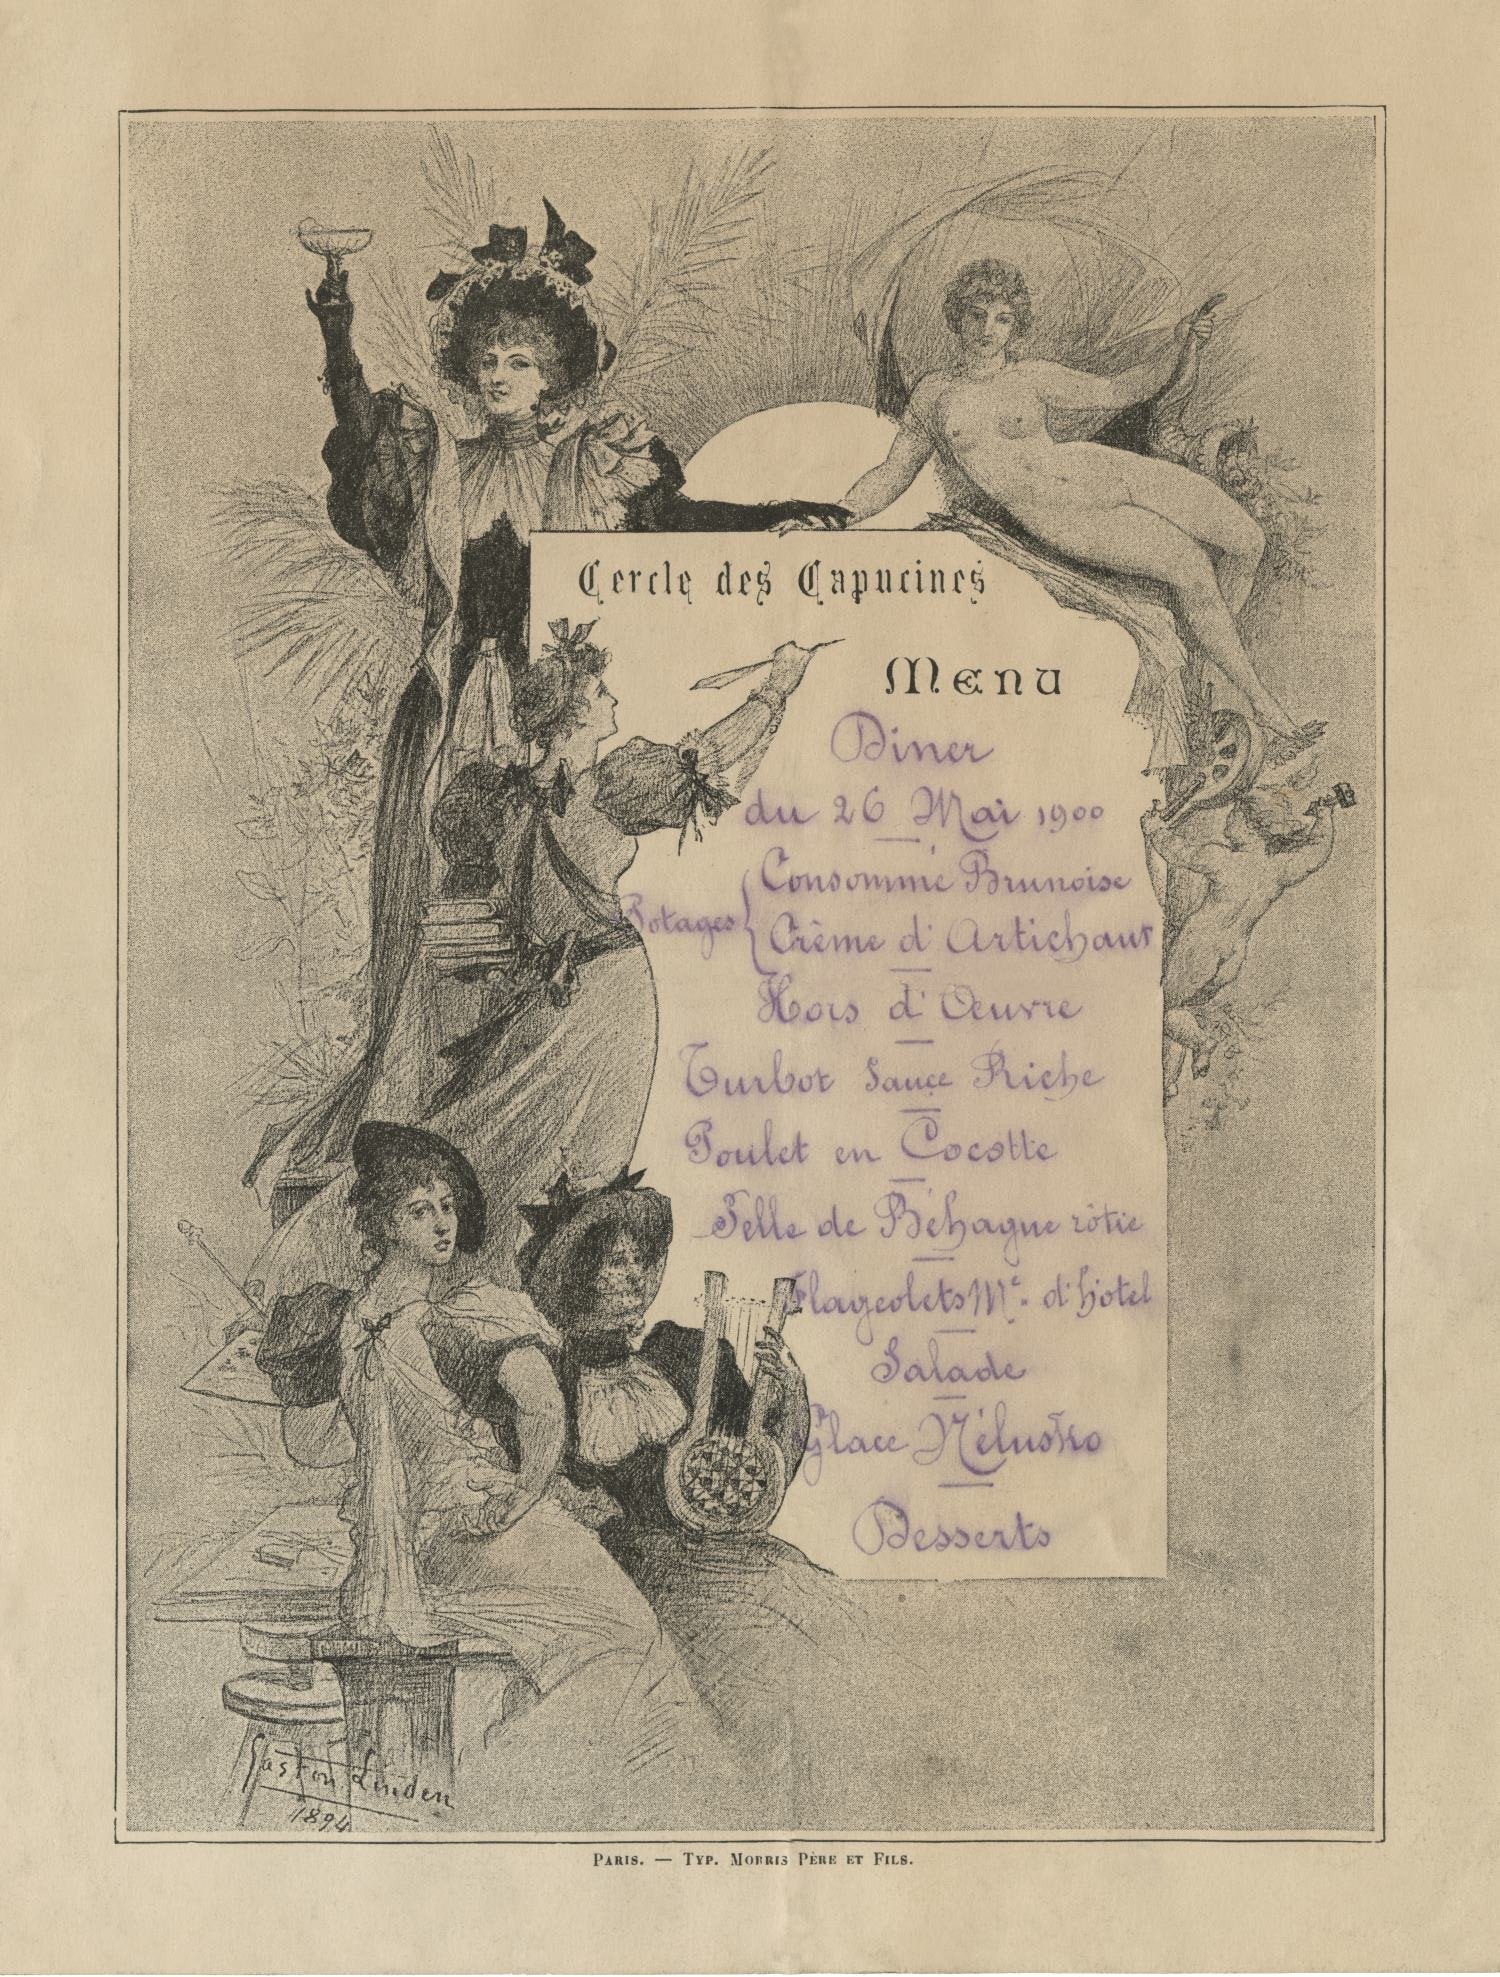 Cercle des Capucines
Menu
Diner
du 26 Mai 1900
Potages { Consommé Brunoise
Crème d'Artichaut
Hors d'Œuvre
Turbot Sauce Riche
Poulet en Cocotte
Selle de Béhague rôtie
Flageolets Mᵉ. d'hôtel
Salade
Glace
Desserts
Gaston Linden
1894
PARIS. — TYP. MORRIS PÈRE ET FILS.